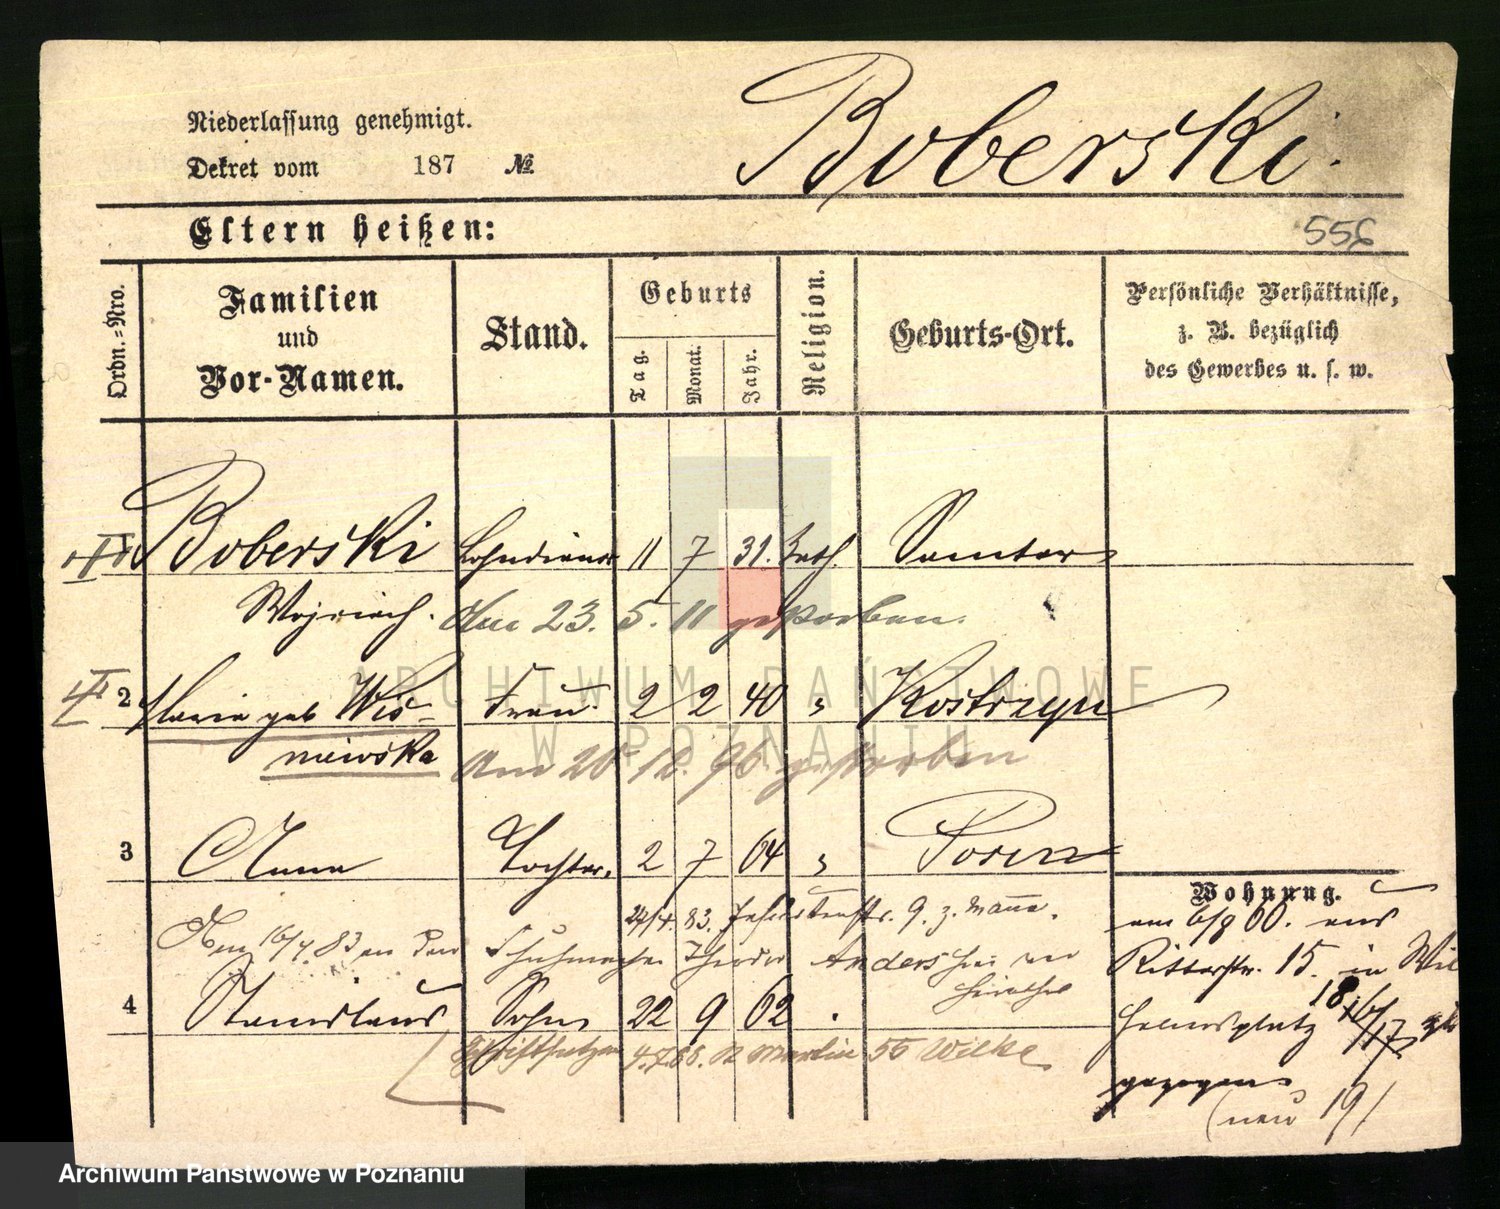 Niederlassung genehmigt.
Dekret vom 187 №
Boberski.
Eltern heißen:
556
Ordn.-Nro.
Familien
und
Vor-Namen.
Stand.
Geburts
Tag.
Monat.
Jahr.
Religion.
Geburts-Ort.
Persönliche Verhältnisse,
z. B. bezüglich
des Gewerbes u. s. w.
Boberski Lohndiener 11 7 31. kath. Samter
Wojciech. Am 23. 5. 11 gestorben.
2 Maria geb Wis- Frau 2 2 40 " Kostrzyn
niewska Am 20 12. 96 gestorben
3 Anna Tochter. 2 7 64 " Posen
24/4. 83. 9. z. Mann.
Am 16/4 83 an den Schuhmacher Theodor Anders hier ver
heirathet
4 Stanislaus Sohn 22 9 62
Schriftsetzer 4.7.88. St Martin 55 Wilke
Wohnung.
am 6/8 00. aus
Ritterstr. 15. in Wil
helmsplatz 18
gezogen
(neu 19)
ARCHIWUM PAŃSTWOWE
W POZNANIU
Archiwum Państwowe w Poznaniu